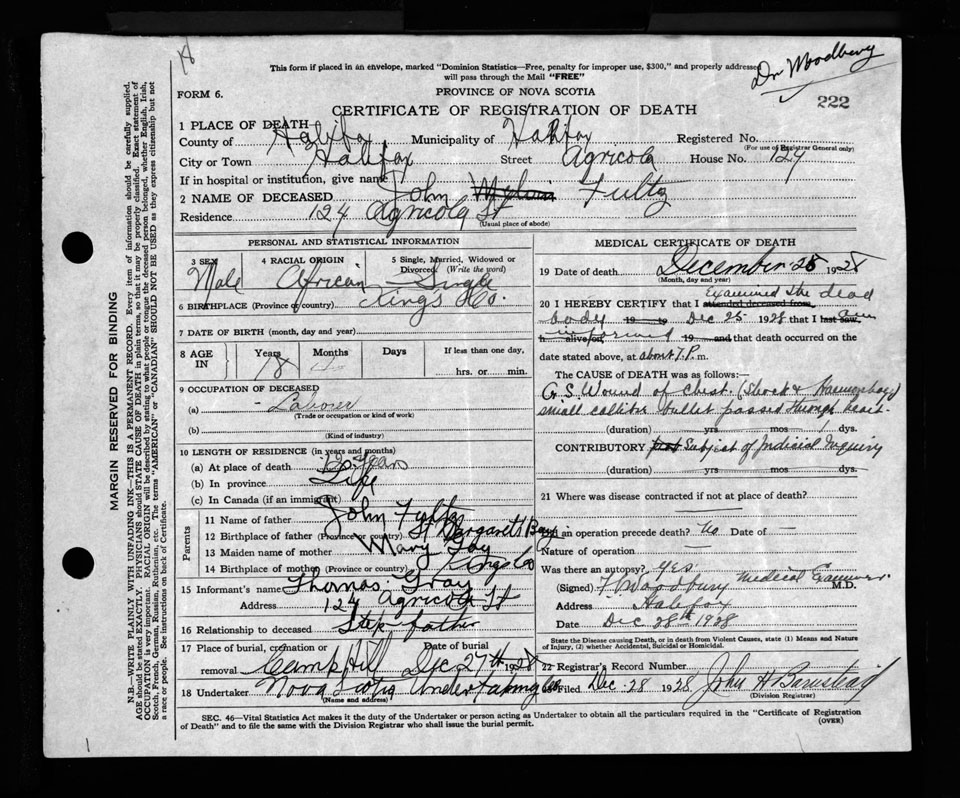 Dr Woodbury
222
This form if placed in an envelope, marked "Dominion Statistics—Free, penalty for improper use, $300," and properly addressed
will pass through the Mail "FREE"
FORM 6.
PROVINCE OF NOVA SCOTIA
CERTIFICATE OF REGISTRATION OF DEATH
1 PLACE OF DEATH
County of Halifax Municipality of Halifax Registered No.
(For use of Registrar General only)
City or Town Halifax Street Agricola House No. 124
If in hospital or institution, give name
2 NAME OF DECEASED John Fultz
Residence 124 Agricola St
(Usual place of abode)
PERSONAL AND STATISTICAL INFORMATION
3 SEX Male 4 RACIAL ORIGIN African 5 Single, Married, Widowed or Divorced (Write the word) Single
6 BIRTHPLACE (Province or country) Kings Co.
7 DATE OF BIRTH (month, day and year)
8 AGE IN Years 18 Months Days If less than one day, hrs. or min.
9 OCCUPATION OF DECEASED
(a) Laborer
(Trade or occupation or kind of work)
(b)
(Kind of industry)
10 LENGTH OF RESIDENCE (in years and months)
(a) At place of death Years
(b) In province Life
(c) In Canada (if an immigrant)
Parents
11 Name of father John Fultz
12 Birthplace of father (Province or country) St Margarets Bay
13 Maiden name of mother Mary
14 Birthplace of mother (Province or country) Kings Co
15 Informant's name Thomas Gray
Address 124 Agricola St
16 Relationship to deceased Step father
17 Place of burial, cremation or removal Camp Hill Date of burial Dec 27th 1928
18 Undertaker Nova Scotia Undertaking Co
(Name and address)
MEDICAL CERTIFICATE OF DEATH
19 Date of death December 25 1928
(Month, day and year)
20 I HEREBY CERTIFY that I attended deceased from Examined the dead
body 19 19 Dec 25 1928 that I last saw
h alive on 19 and that death occurred on the
date stated above, at about 7 P. m.
The CAUSE of DEATH was as follows:—
G.S. Wound of chest. (Shock & Haemorrhage)
small calibre bullet passed through heart.
(duration) yrs mos dys.
CONTRIBUTORY Subject of Judicial Inquiry
(duration) yrs mos dys.
21 Where was disease contracted if not at place of death?
Did an operation precede death? No Date of —
Nature of operation —
Was there an autopsy? Yes
(Signed) F Woodbury Medical Examiner M.D.
Address Halifax
Date Dec 28th 1928
State the Disease causing Death, or in death from Violent Causes, state (1) Means and Nature
of Injury, (2) whether Accidental, Suicidal or Homicidal.
22 Registrar's Record Number
23 Filed Dec. 28 1928 John A Barnstead
(Division Registrar)
SEC. 46—Vital Statistics Act makes it the duty of the Undertaker or person acting as Undertaker to obtain all the particulars required in the "Certificate of Registration
of Death" and to file the same with the Division Registrar who shall issue the burial permit. (OVER)
MARGIN RESERVED FOR BINDING
N.B.—WRITE PLAINLY WITH UNFADING INK—THIS IS A PERMANENT RECORD. Every item of information should be carefully supplied.
AGE should be stated EXACTLY. PHYSICIANS should STATE CAUSE OF DEATH in plain terms, so that it may be properly classified. Exact statement of
OCCUPATION is very important. RACIAL ORIGIN will be described by stating to what people or tongue the deceased person belonged, whether English, Irish,
Scotch, French, German, Russian, Ruthenian, etc. The terms "AMERICAN" or "CANADIAN" SHOULD NOT BE USED as they express citizenship but not
a race or people. See instructions on back of Certificate.